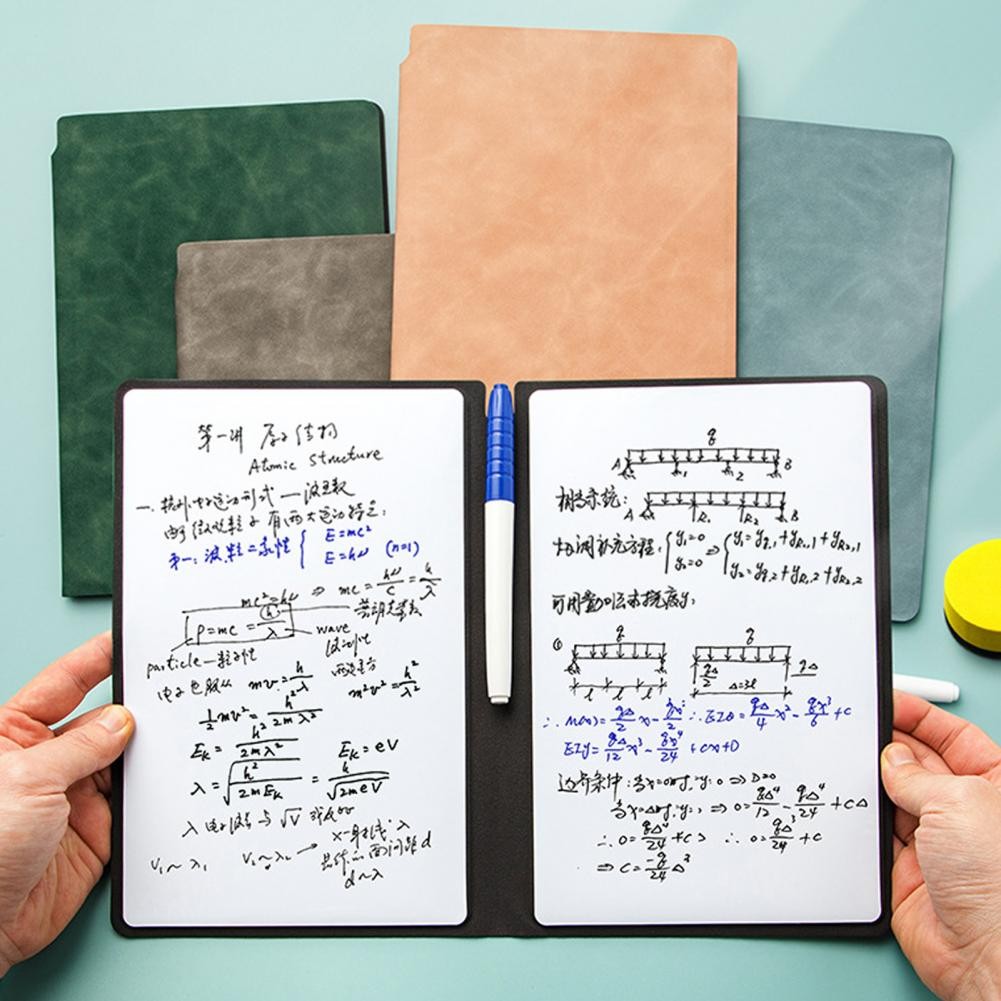 第一讲 原子结构
Atomic Structure
一. 核外电子运动形式 — 波函数
由于微观粒子有两大运动特征:
第一: 波粒二象性 { E=mc²
E=hν (n=1)
mc²=hν ⇒ mc = hν/C = h/λ
P=mc = h/λ
particle—粒子性 wave
波动性
电子也服从 mv = h/λ m²v² = h²/λ²
1/2 mv² = h²/2mλ²
E_K = h²/2mλ² E_K = eV
λ = √(h²/2mE_K) = h/√(2meV)
λ 电子波长与 √V 成反比
V₁~λ₁ V₂~λ₂ → X-射线: λ
晶体的面间距 d
d~λ
q
A 1 2 B
相当系统:
A R₁ R₂ B
协调补充方程: { y₁=0 y₂=0 ⇒ { y₁=y_q,1+y_R₁,1+y_R₂,1
y₂=y_q,2+y_R₁,2+y_R₂,2
可用叠加法求挠度y:
① q q
l l l qΔ/2 Δ=3l qΔ
∴ M(x)=qΔ/2 x - qx²/2 ∴ EIθ = qΔ/4 x² - qx³/6 + c
EIy = qΔ/12 x³ - qx⁴/24 + cx+D
边界条件: 当x=0时, y=0 ⇒ D=0
当x=Δ时, y=0 ⇒ 0 = qΔ⁴/12 - qΔ⁴/24 + cΔ
∴ 0 = qΔ⁴/24 + cΔ ∴ 0 = qΔ³/24 + c
⇒ C = -q/24 Δ³